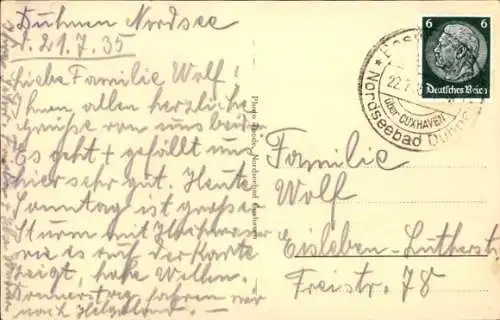 Duhnen Nordsee
d. 21.7.35
Liebe Familie Wolf!
Ihnen allen herzliche
Grüsse von uns beid.
Es geht + gefällt uns
hier sehr gut. Heute
Sonntag ist großer
Sturm mit Hochwasser
wie es auf der Karte
zeigt, hohe Wellen.
Donnerstag fahren wir
nach Helgoland. —
Familie
Wolf
Eisleben-Lutherst.
Freistr. 78
6 6
Deutsches Reich
22.7.
über CUXHAVEN
Nordseebad Duhnen